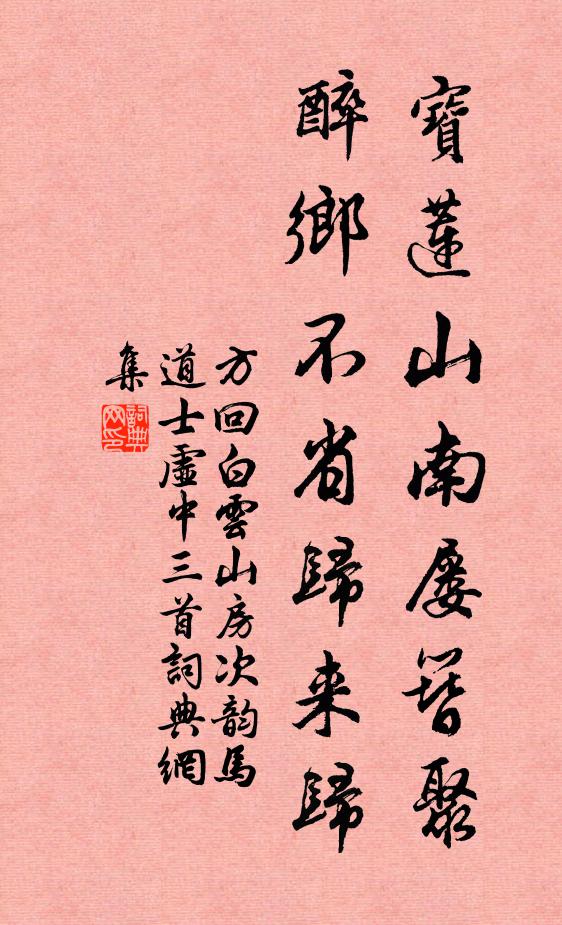 寶蓮山南屢簪聚
醉鄉不省歸来歸
方回白雲山房次韵馬
道士虛中三首詞典網
集
詞典网印